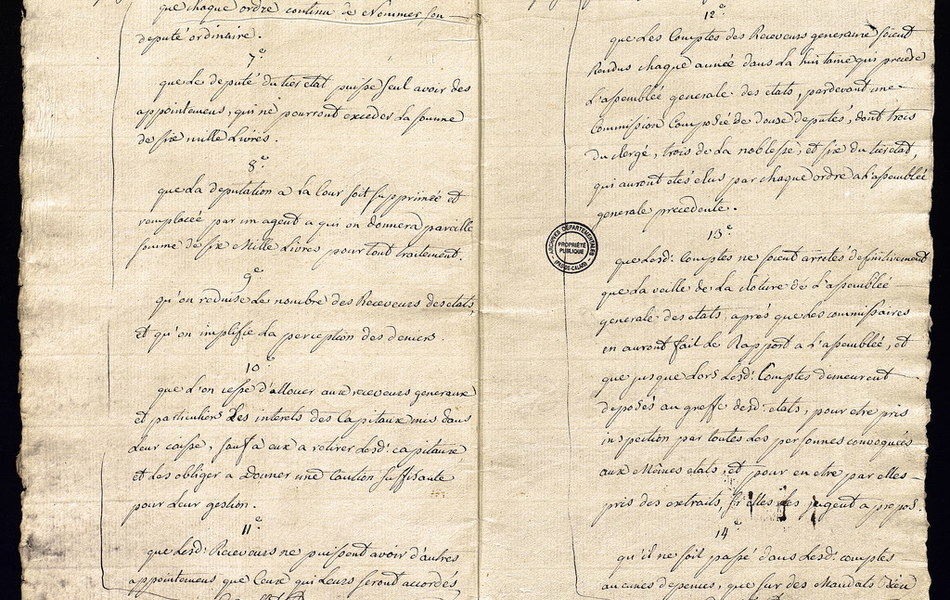 que chaque ordre continu de Nommer son
deputé ordinaire.
7e
que le deputé du tier etat puisse seul avoir des
appointemens, qui ne pourront exceder la somme
de six mille Livres.
8e
que la deputation a la Cour soit supprimée et
remplacée par un agent a qui on donnera pareille
somme de six Mille Livres pour tout traitement.
9e
qu'on reduise Le nombre des Receveurs des etats,
et qu'on simplifie La perception des deniers.
10e
que L'on cesse d'allouer aux receveurs generaux
et particuliers Les interets des Capitaux mis dans
Leur caisse, sauf a eux a retirer Lesd: capitaux
et Les obliger a Donner une Caution suffisante
pour Leur gestion.
11e
que Lesd: Receveurs ne puissent avoir d'autres
appointemens que Ceux qui Leurs seront accordés
12e
que Les Comptes des Receveurs generaux soient
Rendus chaque année dans La huitaine qui precede
L'assemblée generale des etats, pardevant une
Commission Composée de douse deputés, dont trois
du clergé, trois de La noblesse, et six du tier etat,
qui auront etés elus par chaque ordre a L'assemblée
generale precedente.
ARCHIVES DÉPARTEMENTALES
PROPRIÉTÉ
PUBLIQUE
(PAS-DE-CALAIS)
13e
que Lesd: Comptes ne soient arrêtés definitivement
que La veille de La clôture de L'assemblée
generale des etats, aprés que Les commissaires
en auront fait Le Rapport a L'assemblée, et
que jusque Lors Lesd: Comptes demeurent
deposés au greffe desd: etats, pour etre pris
inspection par toutes Les personnes convoquées
aux Mêmes etats, et pour en etre par elles
pris des extraits, si elles Les jugent a propos.
14e
qu'il ne soit passé dans Lesd: comptes
aucunes depences, que sur des Mandats